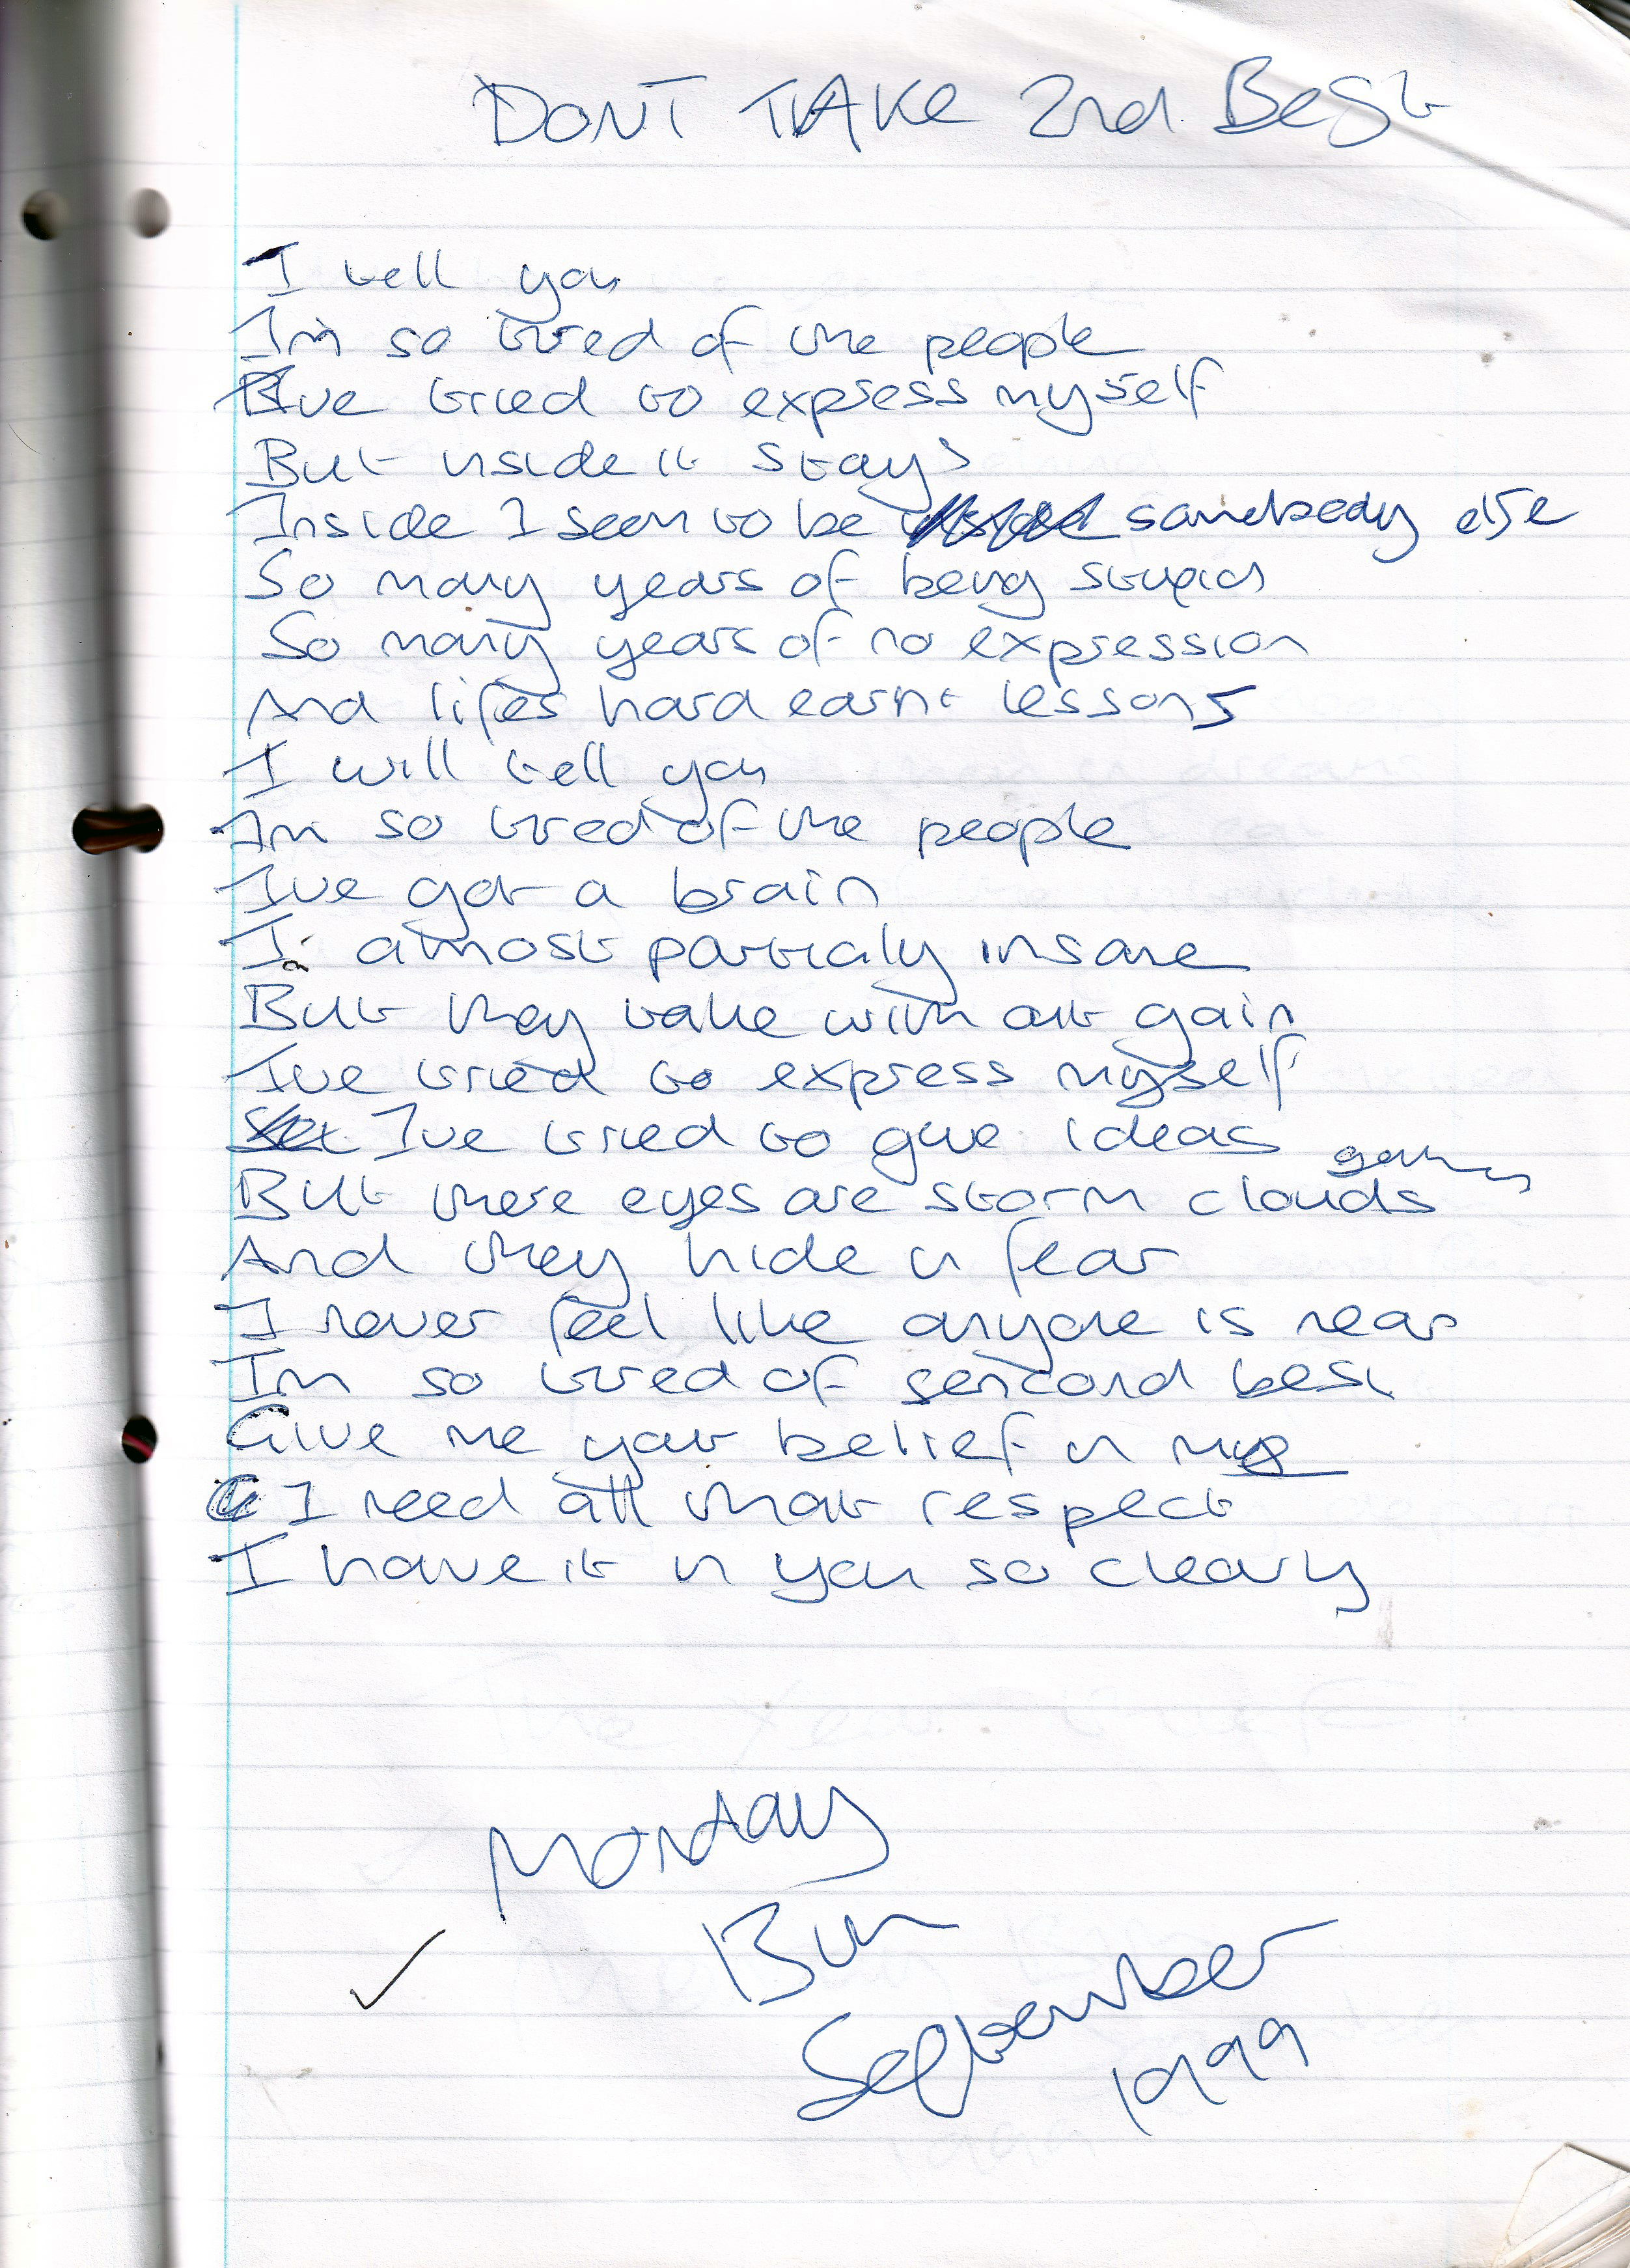 DONT TAKE 2nd Best
I tell you
Im so tired of the people
Ive tried to express myself
But inside it stays
Inside I seem to be somebody else
So many years of being stupid
So many years of no expression
And lifes hard earnt lessons
I will tell you
Im so tired of the people
Ive got a brain
I almost particaly insane
But they take with out gain
Ive tried to express myself
Ive tried to give ideas
But there eyes are storm clouds
And they hide in fear
I never feel like anyone is near
Im so tired of sencond best
Give me your belief in me
I need all that respect
I have it in you so clearly
Monday
13th
September
1999